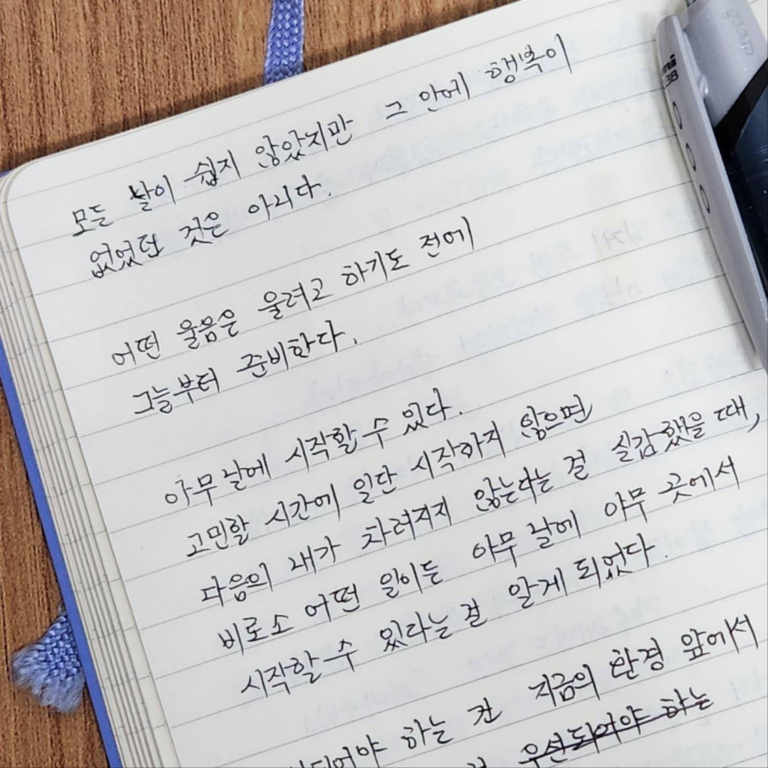 모든 날이 쉽지 않았지만 그 안에 행복이
없었던 것은 아니다.
어떤 울음은 울려고 하기도 전에
그늘부터 준비한다.
아무 날에 시작할 수 있다.
고민할 시간에 일단 시작하지 않으면
다음의 내가 차려지지 않는다는 걸 실감했을 때,
비로소 어떤 일이든 아무 날에 아무 곳에서
시작할 수 있다는 걸 알게 되었다.
하는 건 지금의 환경 앞에서
우선되어야 하는